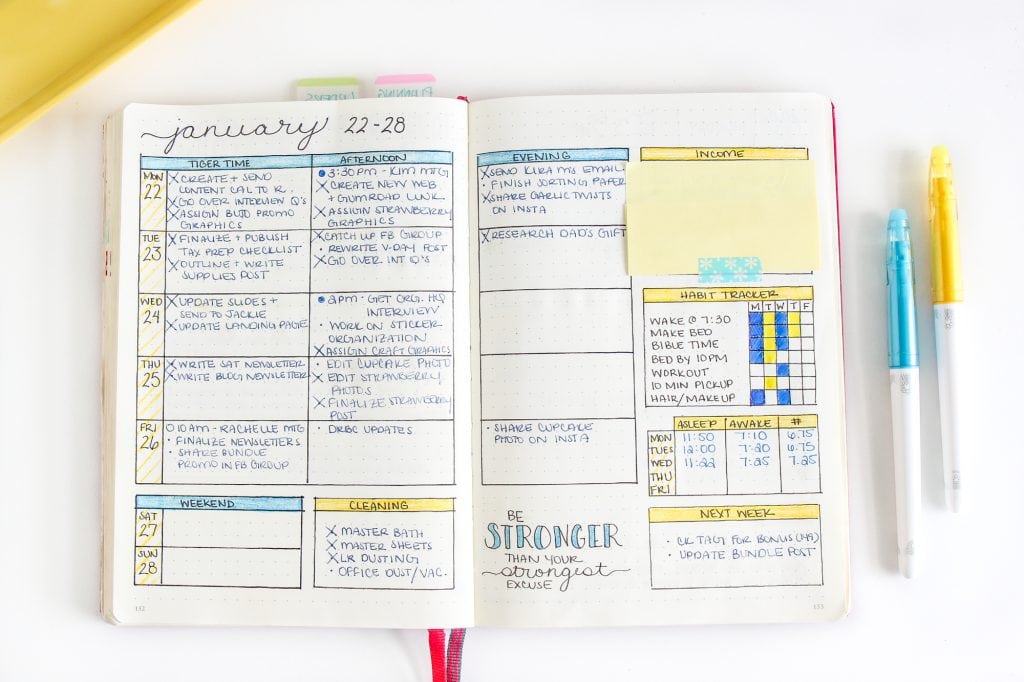 PLANNING
january 22-28
TIGER TIME
AFTERNOON
MON
22
X CREATE + SEND
CONTENT CAL TO K.
X GO OVER INTERVIEW Q'S
X ASSIGN BUJO PROMO
GRAPHICS
• 3:30 PM - KIM MTG
X CREATE NEW WEB
+ GUMROAD LINK
X ASSIGN STRAWBERRY
GRAPHICS
TUE
23
X FINALIZE + PUBLISH
TAX PREP CHECKLIST
X OUTLINE + WRITE
SUPPLIES POST
X CATCH UP FB GROUP
• REWRITE V-DAY POST
X GO OVER INT Q'S
WED
24
X UPDATE SLIDES +
SEND TO JACKIE
X UPDATE LANDING PAGE
• 2 PM - GET ORG. HQ
INTERVIEW
• WORK ON STICKER
ORGANIZATION
X ASSIGN CRAFT GRAPHICS
THU
25
X WRITE SAT NEWSLETTER
X WRITE BLOG NEWSLETTER
• EDIT CUPCAKE PHOTO
X EDIT STRAWBERRY
PHOTOS
X FINALIZE STRAWBERRY
POST
FRI
26
O 10 AM - RACHELLE MTG
• FINALIZE NEWSLETTERS
• SHARE BUNDLE
PROMO IN FB GROUP
• DRBC UPDATES
WEEKEND
SAT
27
SUN
28
CLEANING
X MASTER BATH
X MASTER SHEETS
X LR DUSTING
• OFFICE DUST/VAC.
132
EVENING
X SEND KIRA M'S EMAIL
• FINISH SORTING PAPER
X SHARE GARLIC TWISTS
ON INSTA
X RESEARCH DAD'S GIFT
• SHARE CUPCAKE
PHOTO ON INSTA
BE
STRONGER
THAN YOUR
strongest
EXCUSE
INCOME
HABIT TRACKER
M T W T F
WAKE @ 7:30
MAKE BED
BIBLE TIME
BED BY 10PM
WORKOUT
10 MIN PICKUP
HAIR/MAKEUP
ASLEEP AWAKE #
MON 11:50 7:10 6.75
TUES 12:00 7:20 6.75
WED 11:22 7:25 7.25
THU
FRI
NEXT WEEK
• CK TAG FOR BONUS
• UPDATE BUNDLE POST
133